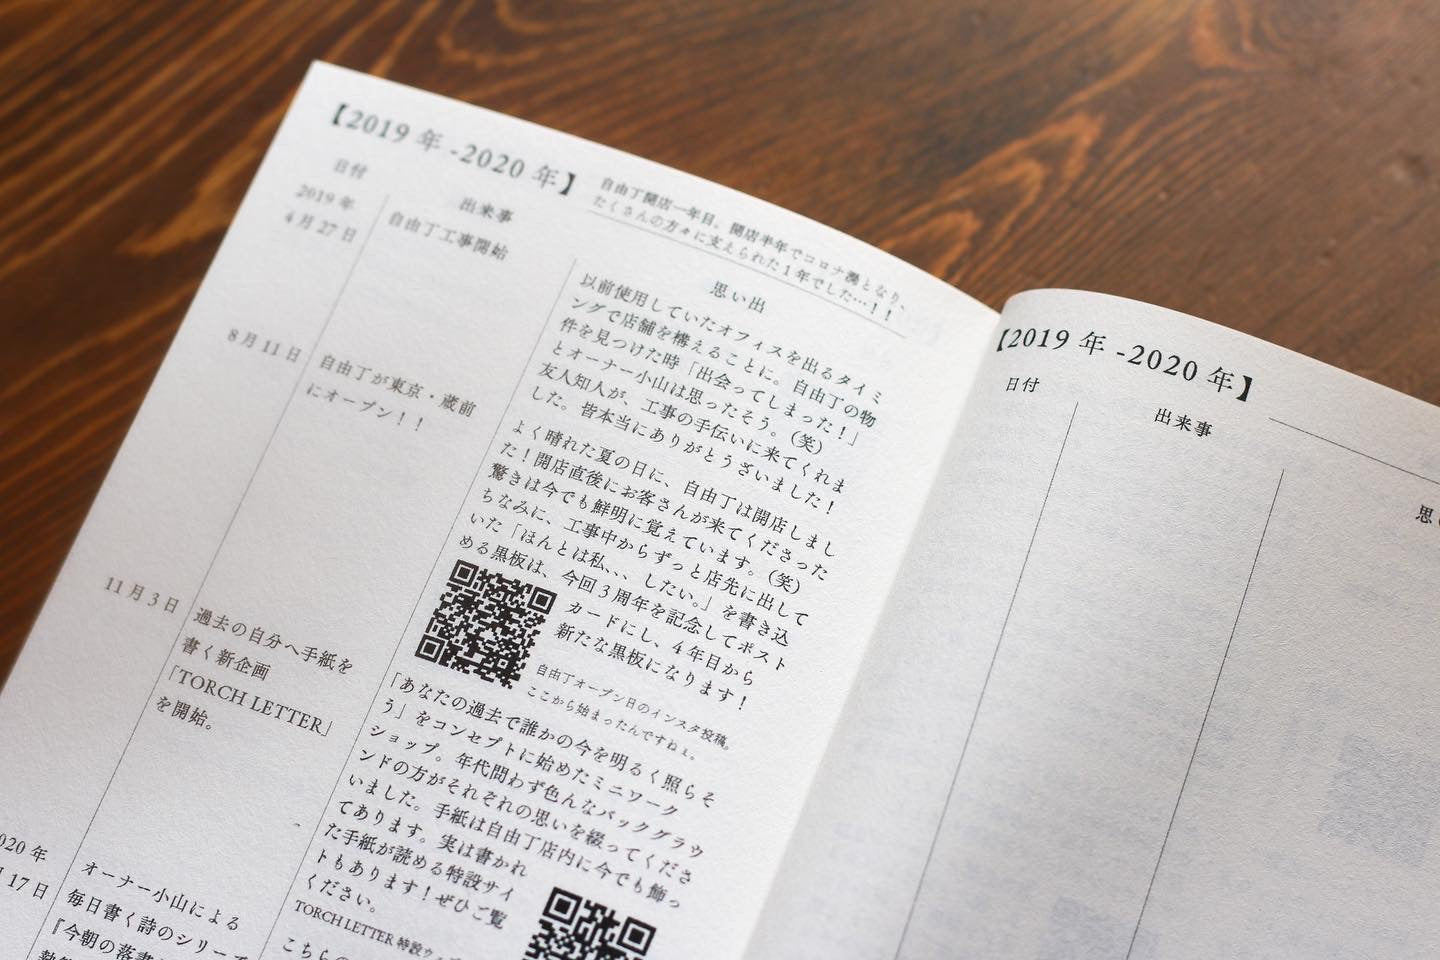 【2019 年 -2020 年】
自由丁開店一年目。開店半年でコロナ禍となり、
たくさんの方々に支えられた1年でした…！！
日付
出来事
思い出
2019 年
4 月 27 日
自由丁工事開始
以前使用していたオフィスを出るタイミ
ングで店舗を構えることに。自由丁の物
件を見つけた時「出会ってしまった！」
とオーナー小山は思ったそう。（笑）
友人知人が、工事の手伝いに来てくれま
した。皆本当にありがとうございました！
8 月 11 日
自由丁が東京・蔵前
にオープン！！
よく晴れた夏の日に、自由丁は開店しまし
た！開店直後にお客さんが来てくださった
驚きは今でも鮮明に覚えています。（笑）
ちなみに、工事中からずっと店先に出して
いた「ほんとは私、、、したい。」を書き込
める黒板は、今回 3 周年を記念してポスト
カードにし、4 年目から
新たな黒板になります！
自由丁オープン日のインスタ投稿。
ここから始まったんですねぇ。
11 月 3 日
過去の自分へ手紙を
書く新企画
「TORCH LETTER」
を開始。
「あなたの過去で誰かの今を明るく照らそ
う」をコンセプトに始めたミニワーク
ショップ。年代問わず色んなバックグラウ
ンドの方がそれぞれの思いを綴ってくださ
いました。手紙は自由丁店内に今でも飾っ
てあります。実は書かれ
た手紙が読める特設サイ
トもあります！ぜひご覧
ください。
TORCH LETTER 特設ウェ
020 年
月 17 日
オーナー小山による
毎日書く詩のシリーズ
『今朝の落書
こちらの
【2019 年 -2020 年】
日付
出来事
思い